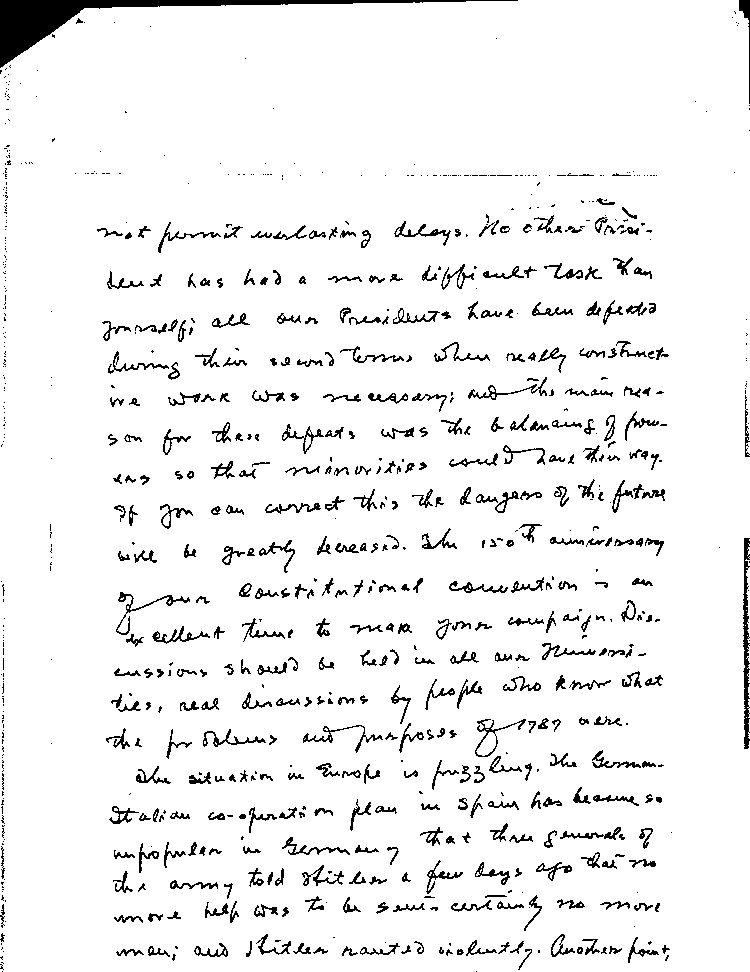 not permit everlasting delays. No other Presi-
dent has had a more difficult task than
yourself; all our Presidents have been defeated
during their second terms when really construct-
ive work was necessary; and the main rea-
son for these defeats was the balancing of pow-
ers so that minorities could have their way.
If you can correct this the dangers of the future
will be greatly decreased. The 150th anniversary
of our Constitutional convention is an
excellent time to make your campaign. Dis-
cussions should be held in all our Universi-
ties, real discussions by people who know what
the problems and purposes of 1787 were.
The situation in Europe is puzzling. The German-
Italian co-operation plan in Spain has become so
unpopular in Germany that three generals of
the army told Hitler a few days ago that no
more help was to be sent - certainly no more
men; and Hitler ranted violently. Another point,